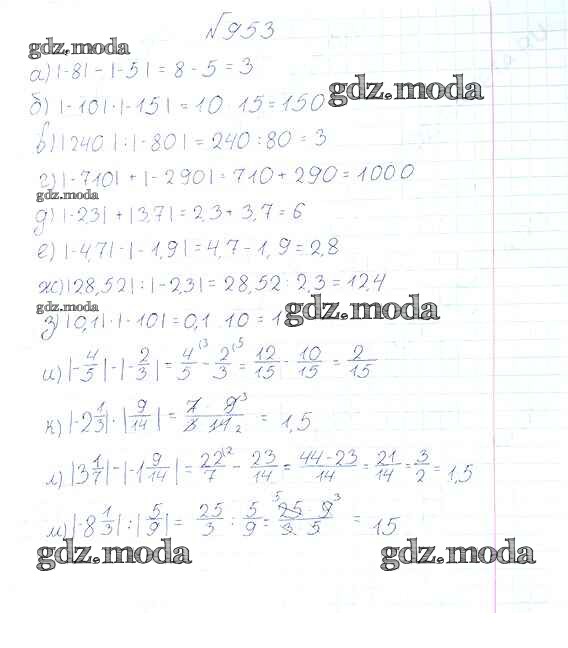 №953
gdz.moda
а) |-8| - |-5| = 8 - 5 = 3
gdz.moda
б) |-10| · |-15| = 10 · 15 = 150
в) |240| : |-80| = 240 : 80 = 3
г) |-710| + |-290| = 710 + 290 = 1000
gdz.moda
д) |-2,3| + |3,7| = 2,3 + 3,7 = 6
е) |-4,7| - |-1,9| = 4,7 - 1,9 = 2,8
ж) |28,52| : |-2,3| = 28,52 : 2,3 = 12,4
gdz.moda
gdz.moda
з) |0,1| · |-10| = 0,1 · 10 = 1
и) |-4/5| - |-2/3| = 4/5 - 2/3 = 12/15 - 10/15 = 2/15
к) |-2 1/3| · |9/14| = 7 · 9/3 · 14 = 1,5
л) |3 1/7| - |-1 9/14| = 22/7 - 23/14 = 44-23/14 = 21/14 = 3/2 = 1,5
м) |-8 1/3| : |5/9| = 25/3 : 5/9 = 25 · 9/3 · 5 = 15
gdz.moda
gdz.moda